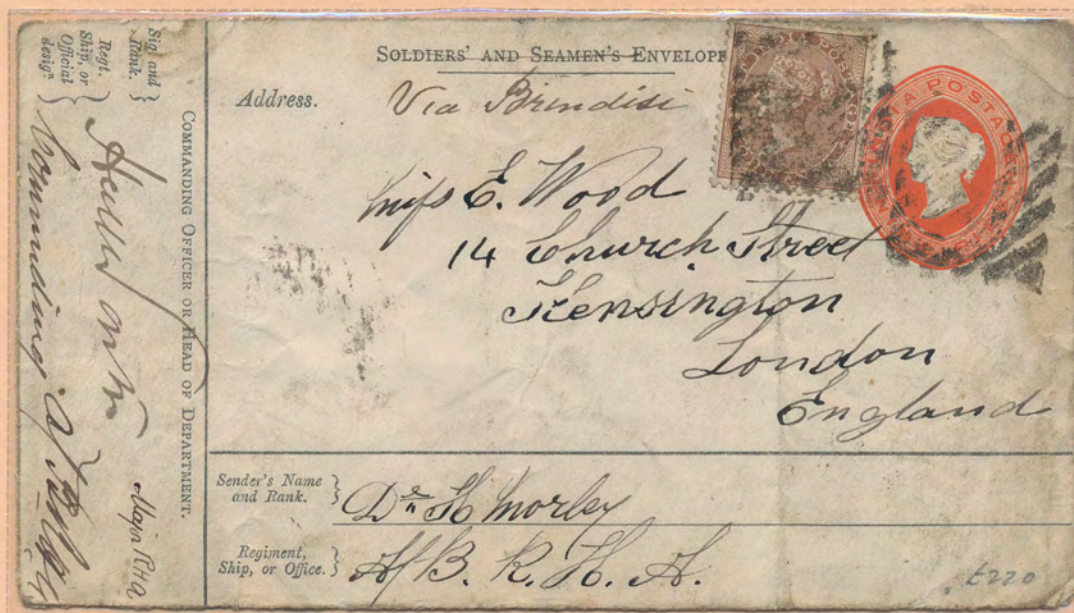 SOLDIERS' AND SEAMEN'S ENVELOPE
Address.
Via Brindisi
Miss E. Wood
14 Church Street
Kensington
London
England
Sender's Name and Rank.
Dr H Morley
Regiment, Ship, or Office.
A/B. R. H. A.
£220
COMMANDING OFFICER OR HEAD OF DEPARTMENT.
Sig. and Rank.
Major RHA
Regt. Ship, or Official desigⁿ.
Commanding
INDIA POSTAGE
INDIA POSTAGE